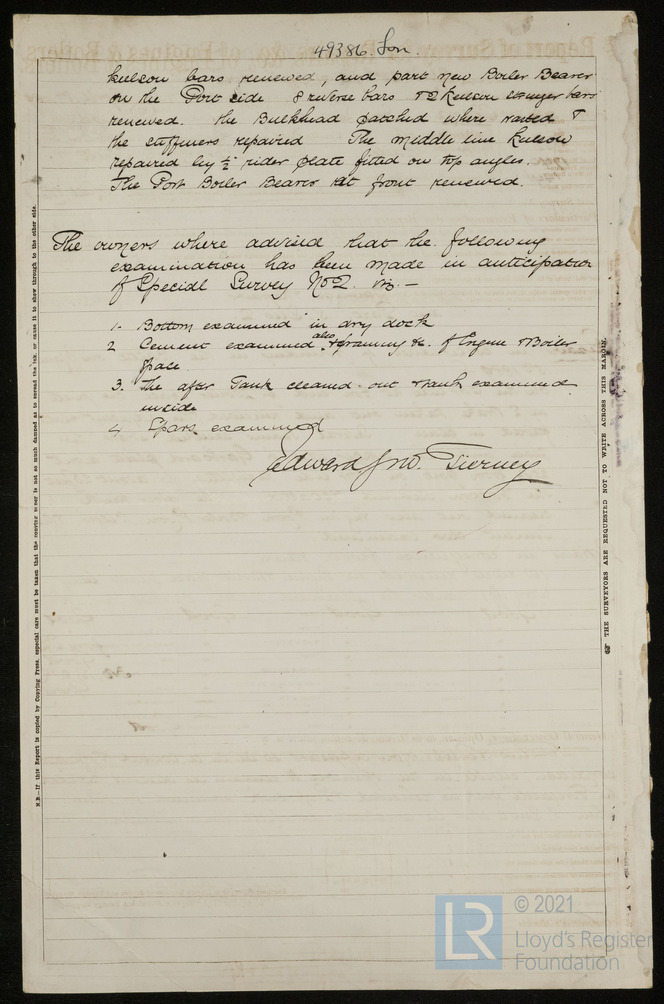 49386. Lon.
keelson bars renewed, and part new Boiler Bearer
on the Port side 8 reverse bars & 2 keelson stringer bars
renewed. the Bulkhead patched where wasted &
the stiffeners repaired The middle line keelson
repaired by ½" rider plate fitted on top angles.
The Port Boiler Bearer at front renewed.
The owners where advised that the following
examination has been made in anticipation
of Special Survey No 2. viz. —
1. Bottom examined in dry dock
2 Cement examined also framing &c. of Engine & Boiler
space
3. The after Tank cleaned out & tank examined
inside
4 Spars examined
Edward Jno. Tierney
N.B.—If this Report is copied by Copying Press, especial care must be taken that the copying paper is not so much damped as to spread the ink, or cause it to show through to the other side.
THE SURVEYORS ARE REQUESTED NOT TO WRITE ACROSS THIS MARGIN.
LR
© 2021
Lloyd's Register
Foundation